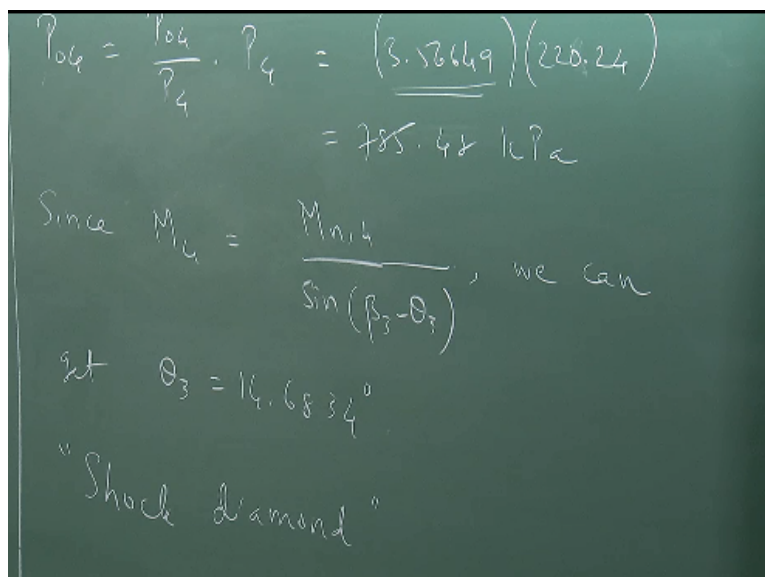 P04 = P04/P4 · P4 = (3.56649)(220.24)
= 785.48 kPa
Since M4 = Mn,4 / sin(β3-θ3), we can
get θ3 = 14.6834°
"Shock diamond"